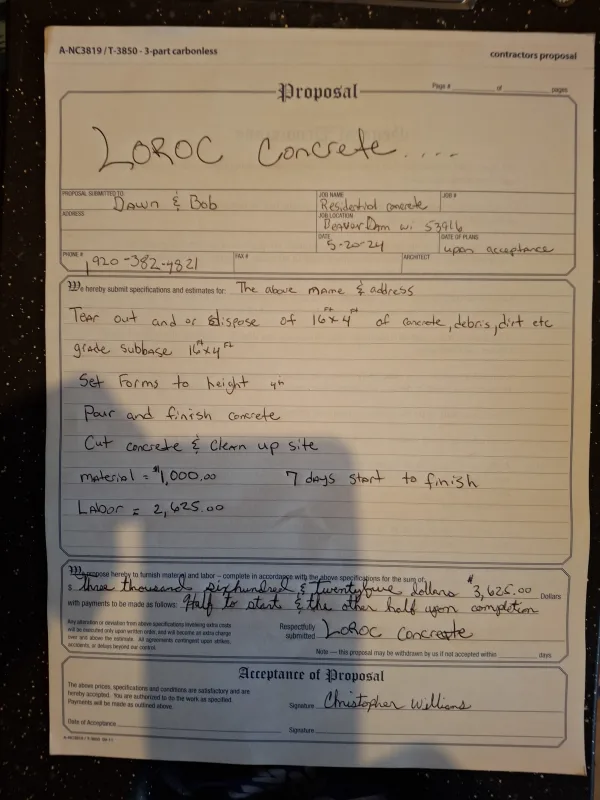 A-NC3819 / T-3850 - 3-part carbonless
contractors proposal
Proposal
Page # of pages
LOROC Concrete....
PROPOSAL SUBMITTED TO:
Dawn & Bob
JOB NAME
Residential concrete
JOB #
ADDRESS
JOB LOCATION
Beaver Dam wi 53916
DATE
5-20-24
DATE OF PLANS
upon acceptance
PHONE #
1920-382-4821
FAX #
ARCHITECT
We hereby submit specifications and estimates for: The above name & address
Tear out and or dispose of 16ft x 4ft of concrete, debris, dirt etc
grade subbase 16ft x 4ft
Set Forms to height 4in
Pour and finish concrete
Cut concrete & Clean up site
material = $1,000.00 7 days start to finish
Labor = 2,625.00
We propose hereby to furnish material and labor – complete in accordance with the above specifications for the sum of:
$ three thousand sixhundred & twentyfive dollars $3,625.00 Dollars
with payments to be made as follows: Half to start & the other half upon completion
Any alteration or deviation from above specifications involving extra costs
will be executed only upon written order, and will become an extra charge
over and above the estimate. All agreements contingent upon strikes,
accidents, or delays beyond our control.
Respectfully
submitted LOROC concreate
Note — this proposal may be withdrawn by us if not accepted within days.
Acceptance of Proposal
The above prices, specifications and conditions are satisfactory and are
hereby accepted. You are authorized to do the work as specified.
Payments will be made as outlined above.
Signature Christopher Williams
Date of Acceptance
Signature